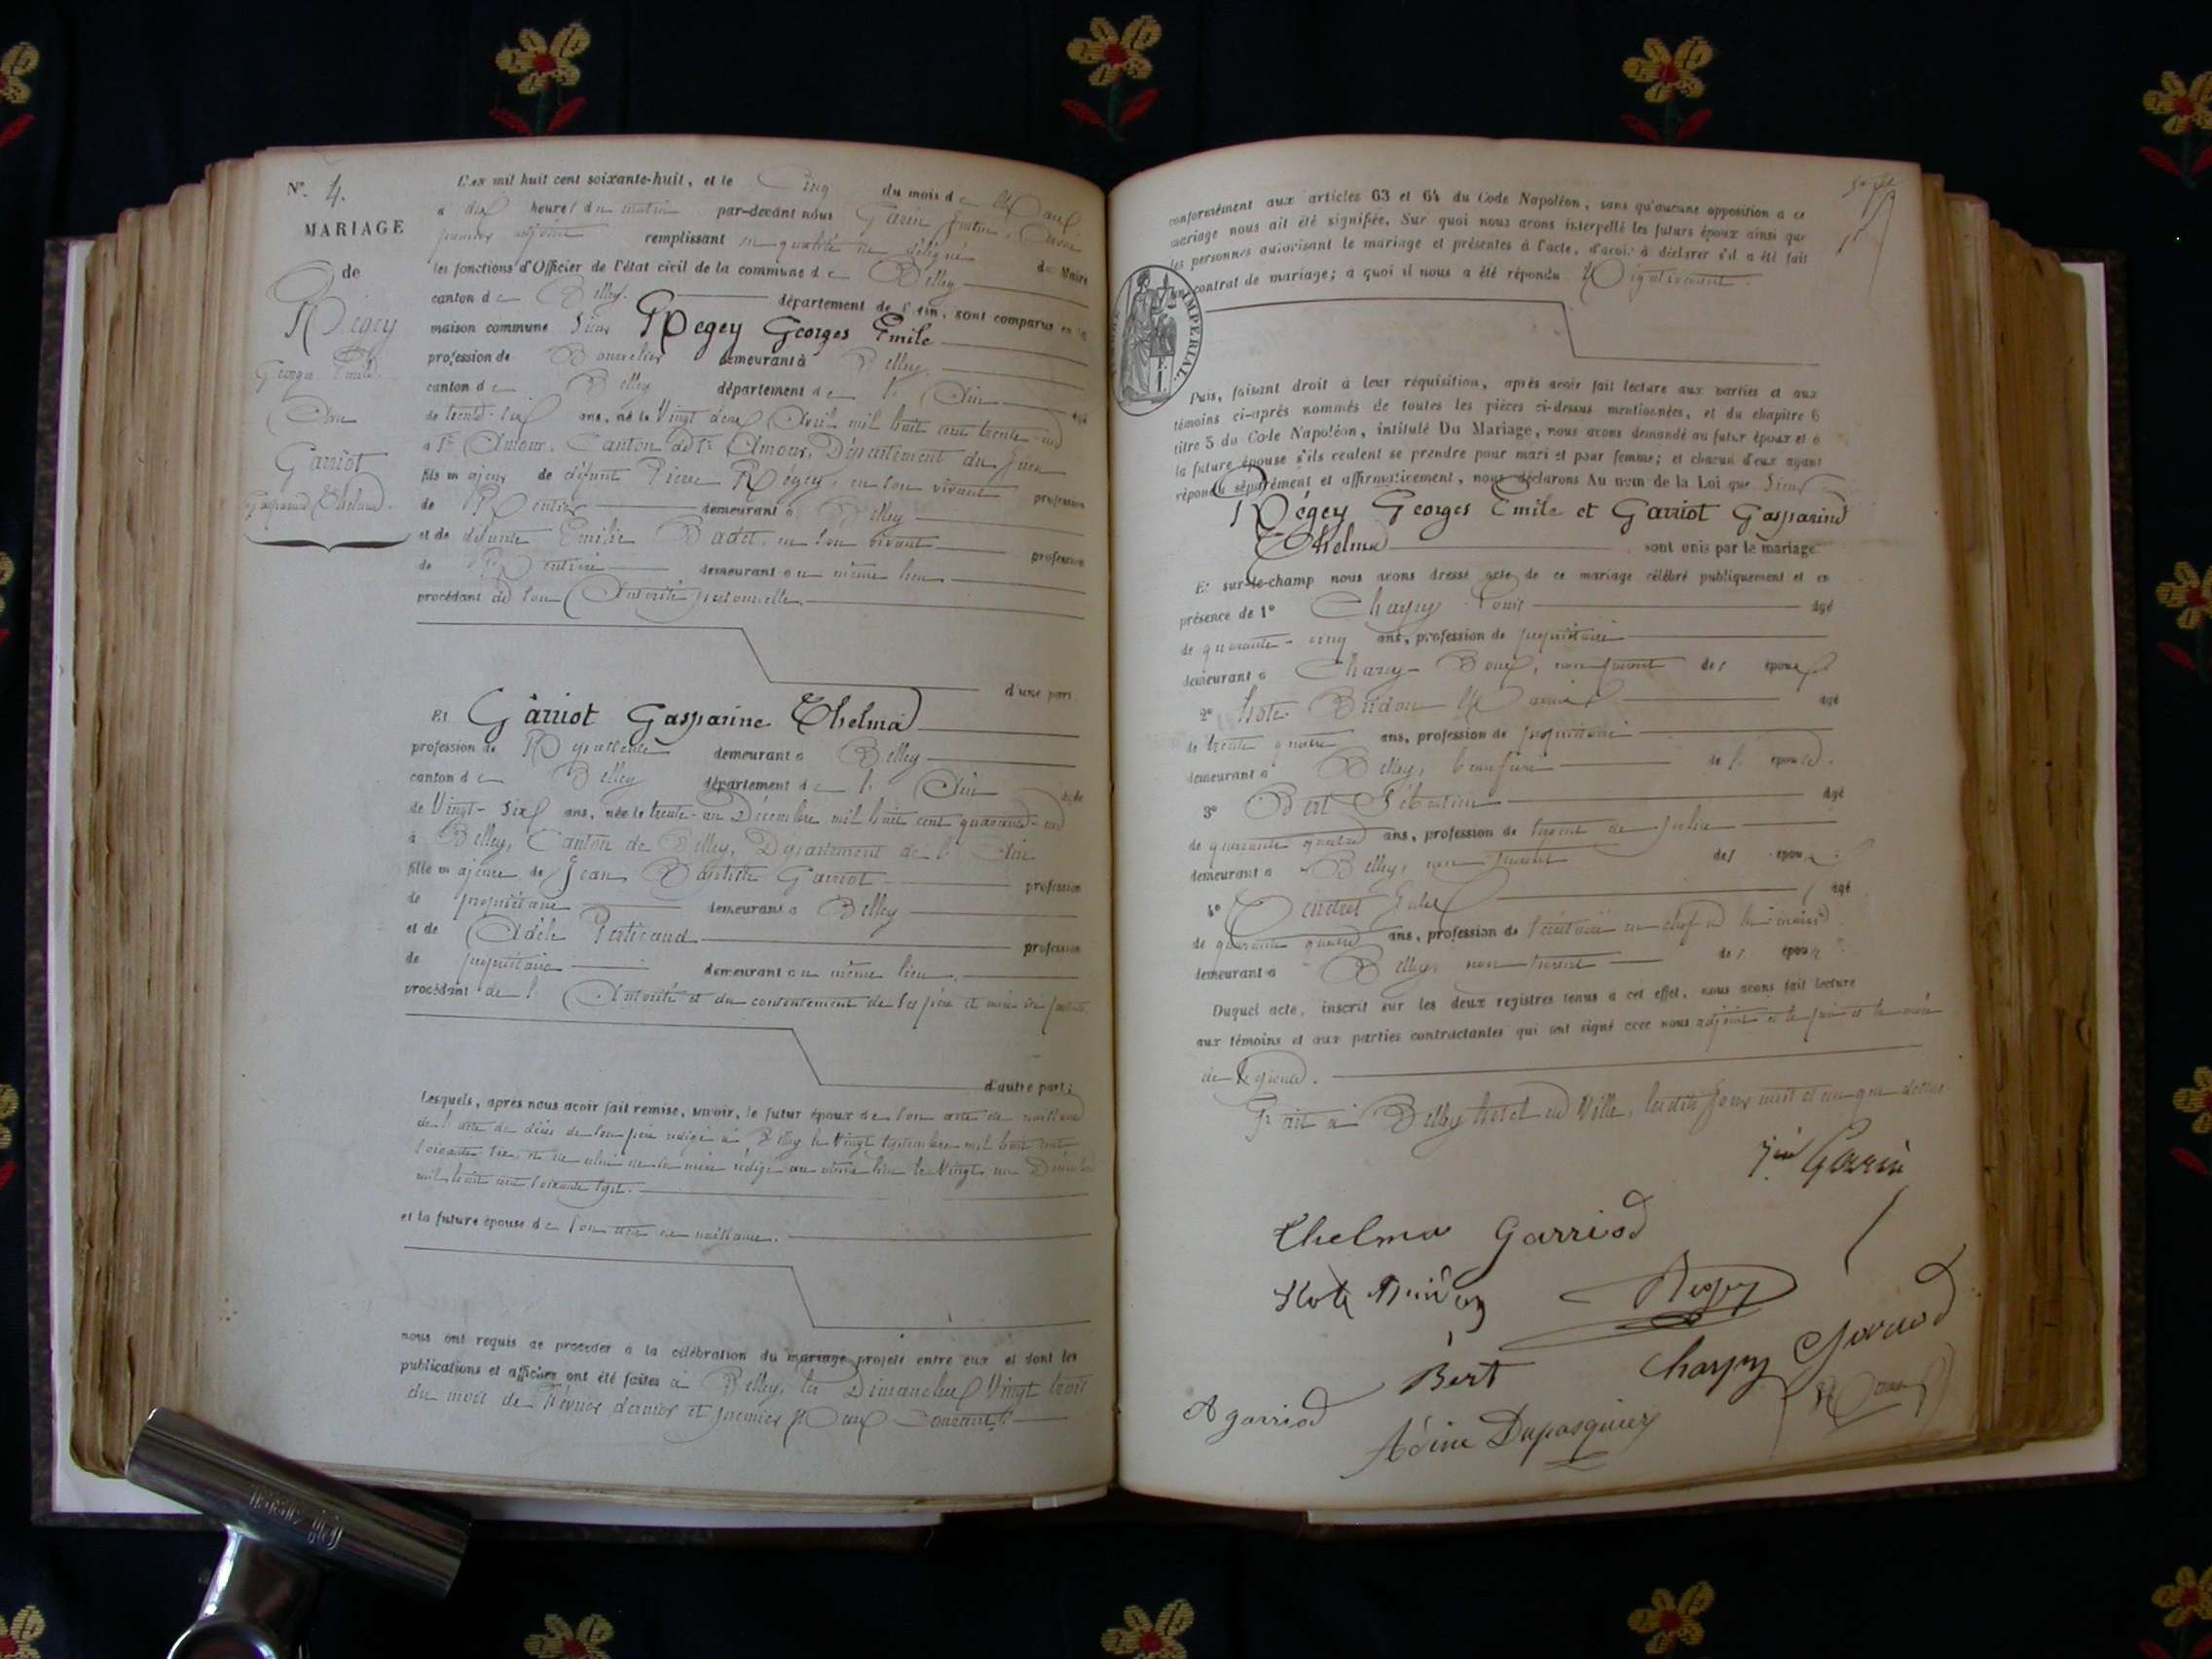 N° 4.
MARIAGE
de
Régey
Georges Emile
Avec
Garriot
Gasparine Thelma
L'an mil huit cent soixante-huit, et le Cinq du mois de Mars
à dix heures du matin par-devant nous Garin
premier adjoint remplissant en qualité de délégué du Maire
les fonctions d'Officier de l'état civil de la commune de Belley
canton de Belley. département de l'Ain, sont comparus en la
maison commune Sieur Régey Georges Emile
profession de Bourrelier demeurant à Belley.
canton de Belley département de l'Ain âgé
de trente-six ans, né le Vingt deux Avril mil huit cent trente-un
à St Amour, Canton de St Amour, Département du Jura
fils majeur de défunt Pierre Régey, en son vivant profession
de Rentier demeurant à Belley
et de défunte Emilie Badet, en son vivant profession
de Rentière demeurant au même lieu
procédant de son Autorité personnelle.
d'une part.
Et Garriot Gasparine Thelma
profession de demeurant à Belley
canton de Belley département de l'Ain âgée
de Vingt-six ans, née le trente-un Décembre mil huit cent quarante-un
à Belley, Canton de Belley, Département de l'Ain
fille majeure de Jean Baptiste Garriot profession
de propriétaire demeurant à Belley
et de Adèle Perticaud profession
de propriétaire demeurant au même lieu.
procédant de l'Autorité et du consentement de ses père et mère ici présents.
d'autre part;
Lesquels, après nous avoir fait remise, savoir, le futur époux de son acte de naissance
de l'acte de décès de son père rédigé à Belley le Vingt Septembre mil huit cent
soixante six, et de celui de sa mère rédigé au même lieu le Vingt un Décembre
mil huit cent soixante sept.
et la future épouse de son acte de naissance.
nous ont requis de procéder à la célébration du mariage projeté entre eux et dont les
publications et affiches ont été faites à Belley, les Dimanches Vingt trois
du mois de Février dernier et premier Mars Courant
conformément aux articles 63 et 64 du Code Napoléon, sans qu'aucune opposition à ce
mariage nous ait été signifiée. Sur quoi nous avons interpellé les futurs époux ainsi que
les personnes autorisant le mariage et présentes à l'acte, d'avoir à déclarer s'il a été fait
un contrat de mariage; à quoi il nous a été répondu Négativement.
TIMBRE IMPERIAL
Puis, faisant droit à leur réquisition, après avoir fait lecture aux parties et aux
témoins ci-après nommés de toutes les pièces ci-dessus mentionnées, et du chapitre 6
titre 5 du Code Napoléon, intitulé Du Mariage, nous avons demandé au futur époux et à
la future épouse s'ils veulent se prendre pour mari et pour femme; et chacun d'eux ayant
répondu séparément et affirmativement, nous déclarons Au nom de la Loi que Sieur
Régey Georges Emile et Garriot Gasparine
Thelma sont unis par le mariage.
Et sur-le-champ nous avons dressé acte de ce mariage célébré publiquement et en
présence de 1° Charpy Louis âgé
de quarante-cinq ans, profession de propriétaire
demeurant à non parent des époux
2° âgé
de trente quatre ans, profession de propriétaire
demeurant à Belley, beau frère de l'épouse.
3° Bert Sébastien âgé
de quarante quatre ans, profession de sergent de police
demeurant à Belley, non parent des époux
4° âgé
de quarante quatre ans, profession de Secrétaire en chef de la mairie
demeurant à Belley, non parent des époux.
Duquel acte, inscrit sur les deux registres tenus à cet effet, nous avons fait lecture
aux témoins et aux parties contractantes qui ont signé avec nous adjoint et le père et la mère
de l'épouse.
Fait à Belley hôtel de Ville, lesdits jour mois et an que dessus
Garin
Thelma Garriod
Régey
Garriod
Bert
Charpy
A garriod
Adine Dupasquier